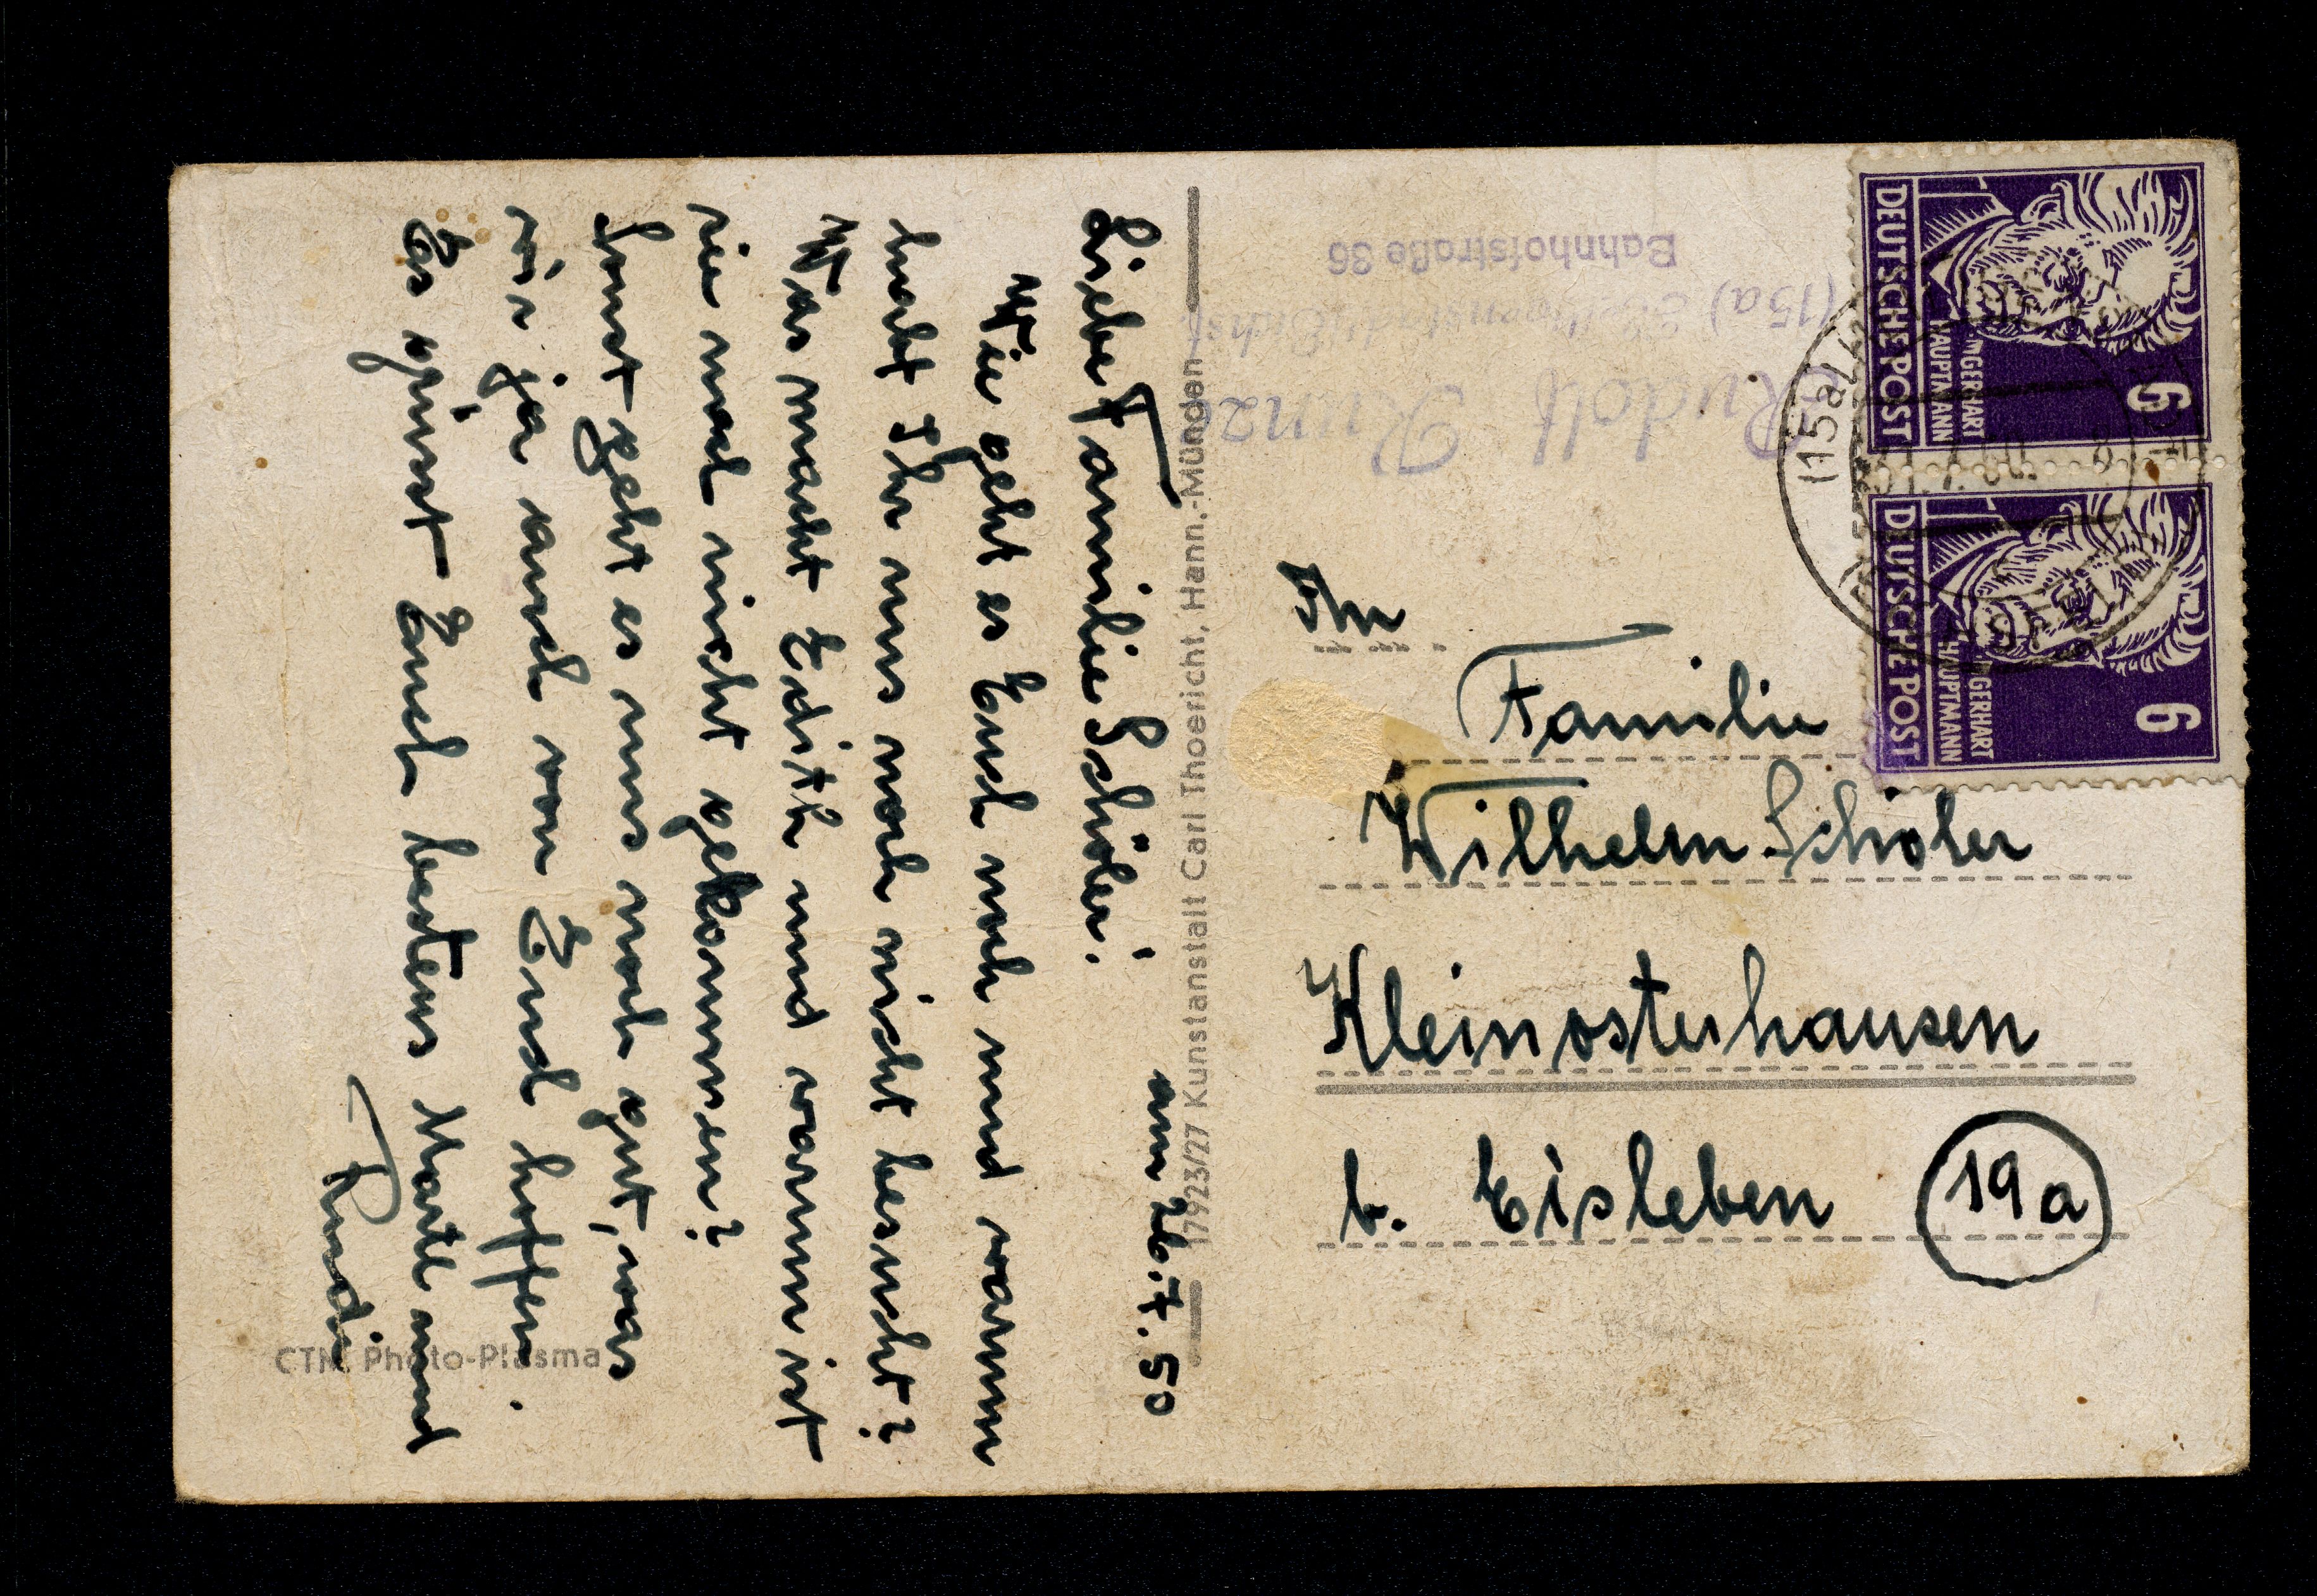 am 26.7.50
Liebe Familie Schöler!
Wie geht es Euch noch und warum
habt Ihr uns noch nicht besucht?
Was macht Edith und warum ist
sie mal nicht gekommen?
Sonst geht es uns noch gut, was
wir ja auch von Euch hoffen.
Es grüsst Euch bestens Martl und
Rudi
CTM Photo-Plasma
17923/27 Kunstanstalt Carl Thoericht, Hann.-Münden
Rudolf Kunze
(15a)
Bahnhofstraße 36
DEUTSCHE POST
GERHART
HAUPTMANN
6
DEUTSCHE POST
GERHART
HAUPTMANN
6
(15a)
An
Familie
Wilhelm Schöler
Kleinosterhausen
b. Eisleben 19a